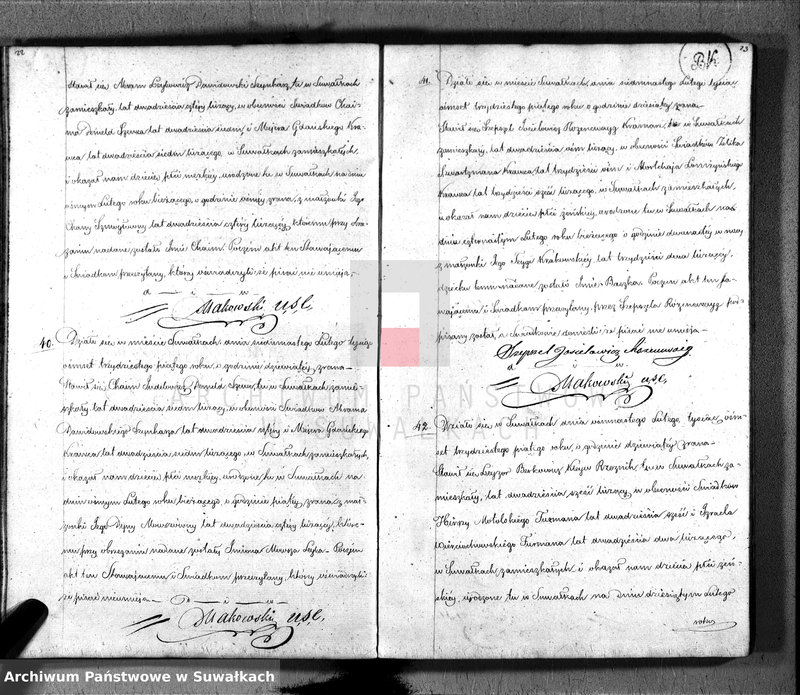 22
Stawił się Abram Leybowicz Dawidowski Szynkarz tu w Suwałkach
zamieszkały, lat dwadzieścia cztery liczący, w obecności Świadków Chai-
ma Szewca lat dwadzieścia siedm i Majera Gdańskiego Kra-
wca lat dwadzieścia siedm liczącego, w Suwałkach zamieszkałych,
i okazał nam dziecię płci męzkiej, urodzone tu w Suwałkach na dniu
ósmym Lutego roku bieżącego, o godzinie ósmej zrana, z małżonki Jego
Chany lat dwadzieścia cztery liczącej, któremu przy obrze-
zaniu nadane zostało Imie Chaim. Poczém akt ten Stawającemu
i Świadkom przeczytany, którzy oświadczyli że pisać nie umieją.
Makowski usc.
40. Działo się w mieście Suwałkach, dnia siedmnastego Lutego tysiąc
ośmset trzydziestego piątego roku, o godzinie dziewiątéj zrana-
Stawił się Chaim Szewc, tu w Suwałkach, zamie-
szkały lat dwadzieścia siedm liczący, w obecności Świadków Abrama
Dawidowskiego Szynkarza lat dwadzieścia cztery i Majera Gdańskiego
Krawca, lat dwadzieścia siedm liczącego, w Suwałkach zamieszkałych,
i okazał nam dziecię płci męzkiej, urodzone tu w Suwałkach na
dniu ósmym Lutego roku bieżącego, o godzinie piątéj, zrana z mał-
żonki Jego lat dwadzieścia cztery liczącej, które-
mu przy obrzezaniu nadane zostały Imiona Mowsza Leyba- Poczém
akt ten Stawającemu i Świadkom przeczytany, którzy oświadczyli
że pisać nieumieją-
Makowski usc.
23
41. Działo się w mieście Suwałkach, dnia siedmnastego Lutego tysiąc
ośmset trzydziestego piątego roku o godzinie dziesiątéj zrana-
Stawił się Szepsel Joselowicz Rozencwayg Kramarz, tu w Suwałkach
zamieszkały, lat dwadzieścia ośm liczący, w obecności Świadków
Swartzmana Krawca lat trzydzieści ośm i Mortchaja
Krawca lat trzydzieści sześć liczącego, w Suwałkach zamieszkałych,
i okazał nam dziecię płci żeńskiéj, urodzone tu w Suwałkach na
dniu czternastym Lutego roku bieżącego o godzinie dwunastéj w nocy
z małżonki Jego Krakowskiéj, lat trzydzieści dwa liczącéj,
dziecku temu nadane zostało Imie Baszka. Poczem akt ten Sta-
wającemu i Świadkom przeczytany, przez Szepszela Rozencwayg pod-
pisany został, a Świadkowie donieśli że pisać nie umieją-
Szepsel Joselowicz Rozencwaig
Makowski usc.
42. Działo się w Suwałkach dnia ośmnastego Lutego, tysiąc ośm-
set trzydziestego piątego roku, o godzinie dziewiątéj zrana-
Stawił się Leyzor Berkowicz Rzeznik tu w Suwałkach za-
mieszkały, lat dwadzieścia sześć liczący w obecności Świadków
Motolskiego Furmana lat dwadzieścia sześć i Izraela
Furmana lat dwadzieścia dwa liczącego,
w Suwałkach zamieszkałych i okazał nam dziecię płci żeń-
skiéj, urodzone tu w Suwałkach na dniu dziesiątym Lutego
roku
ARCHIWUM PAŃSTWOWE
W SUWAŁKACH
Archiwum Państwowe w Suwałkach